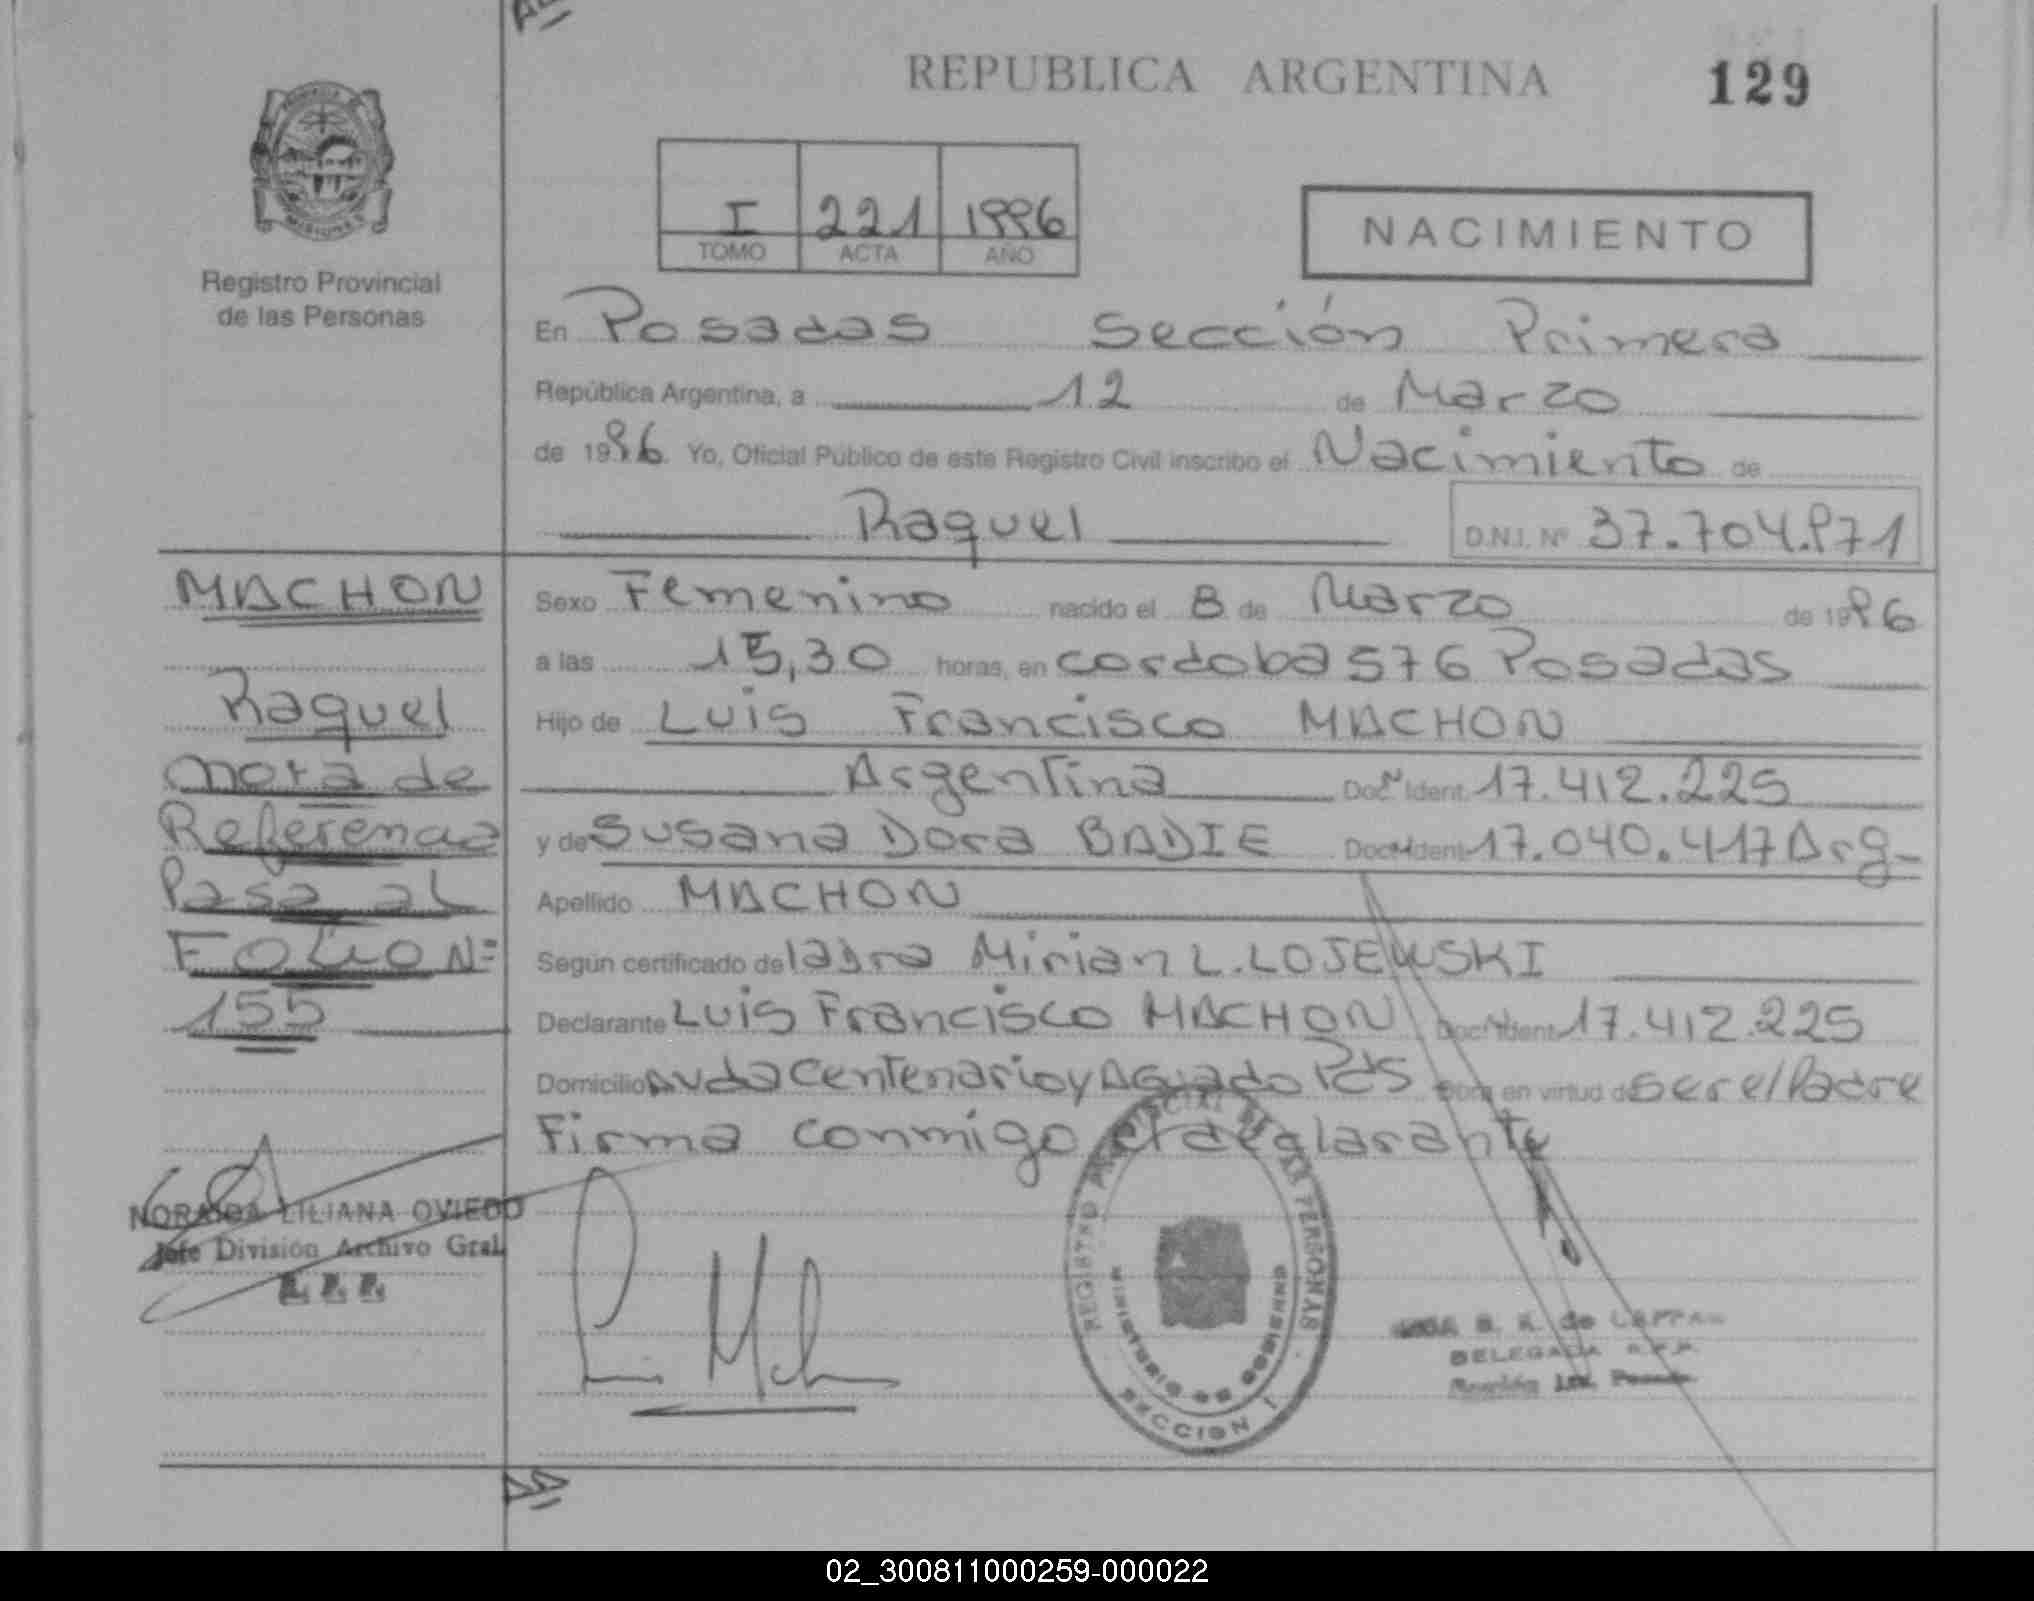 REPUBLICA ARGENTINA
129
PROVINCIA DE
MISIONES
Registro Provincial
de las Personas
I 221 1996
TOMO ACTA AÑO
NACIMIENTO
En Posadas Sección Primera
República Argentina, a 12 de Marzo
de 1996. Yo, Oficial Público de este Registro Civil inscribo el Nacimiento de
Raquel
D.N.I. Nº 37.704.871
MACHON
Sexo Femenino nacido el 8 de Marzo de 1996
a las 15,30 horas, en cordoba 576 Posadas
Raquel
Hijo de Luis Francisco MACHON
Nota de
Argentina Doc. Ident. 17.412.225
Referencia
y de Susana Dora BADIE Doc. Ident. 17.040.417 Arg-
Pasa al
Apellido MACHON
FOLIO Nº
Según certificado de la dra Mirian L. LOJEWSKI
155
Declarante Luis Francisco MACHON Doc. Ident. 17.412.225
Domicilio Avda Centenario y Aguado Pds Obra en virtud de ser el Padre
Firma conmigo el declarante
NORAIDA LILIANA OVIEDO
Jefe División Archivo Gral.
REGISTRO PROVINCIAL DE LAS PERSONAS
MINISTERIO DE GOBIERNO
SECCION I
DELEGADA R.P.P.
02_300811000259-000022